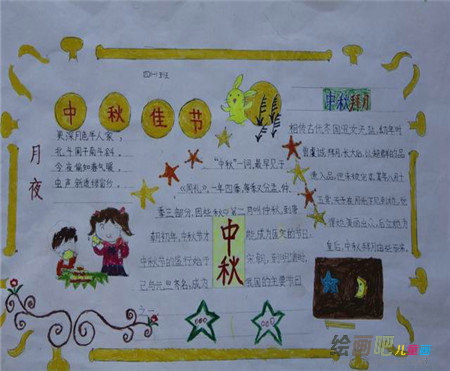 四(一)班
中秋佳节
月夜
更深月色半人家,
北斗阑干南斗斜。
今夜偏知春气暖,
虫声新透绿窗纱。
"中秋"一词,最早见于
《周礼》。一年四季,每季又分孟、仲、
季三部分,因此秋中第二月叫仲秋,到唐
朝初年,中秋节才
成为固定的节日。
中秋节的盛行始于
宋朝,到明清时,
已与元旦齐名,成为
我国的主要节日
之一
中秋
中秋拜月
相传古代齐国丑女无盐,幼年时
曾虔诚拜月,长大后,以超群的品
德入宫,但未被宠幸。某年八月十
五赏月,天子在月光下见到她,觉
得她美丽出众,后立她为
皇后,中秋拜月由此而来。
绘画吧儿童画